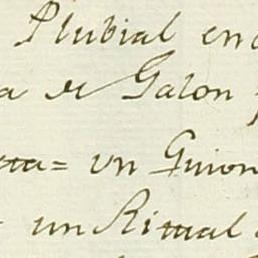 Plubial en
a de Galon
= un Guion
un Ritual